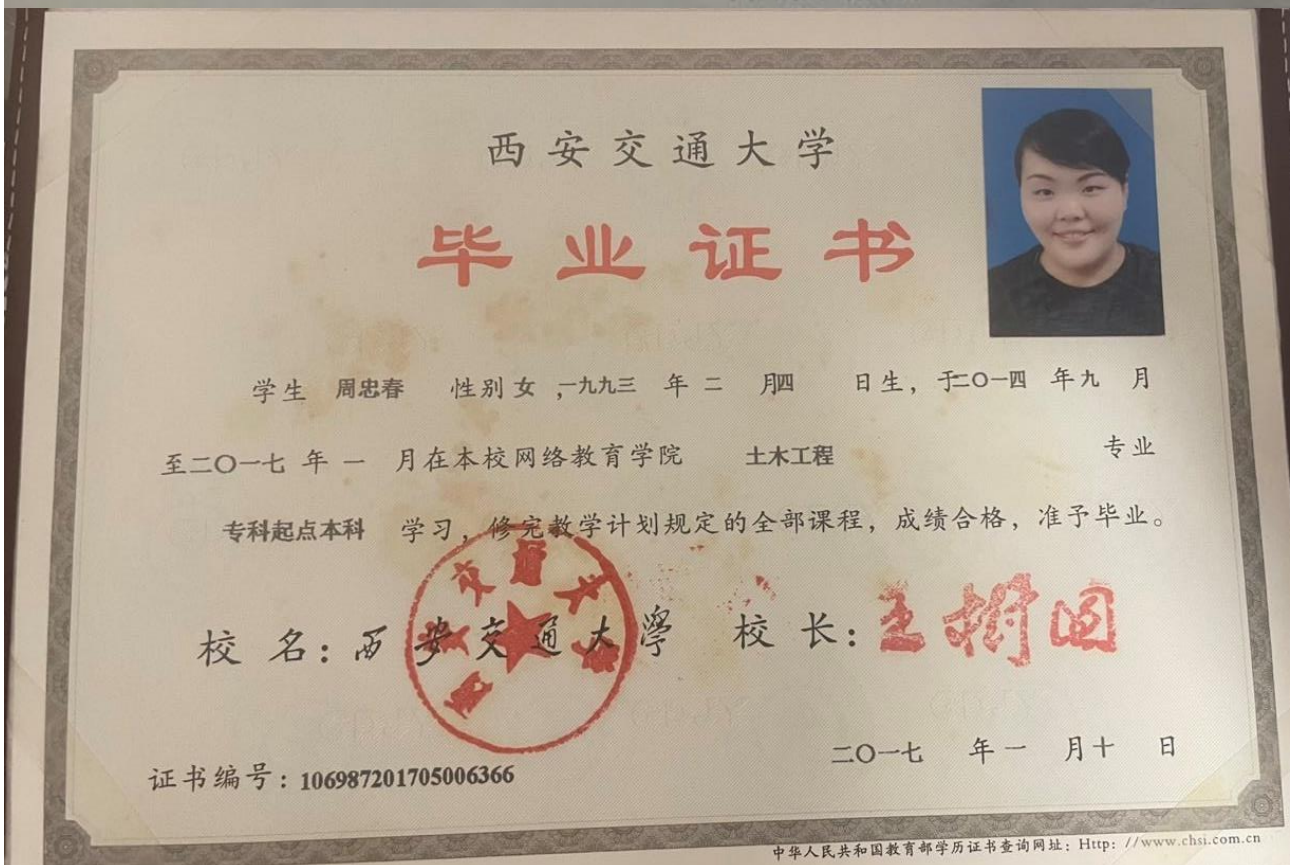 西安交通大学
毕业证书
学生 周忠春 性别 女 ,一九九三 年 二 月四 日生, 于二〇一四 年 九 月
至二〇一七 年 一 月在本校网络教育学院 土木工程 专业
专科起点本科 学习, 修完教学计划规定的全部课程, 成绩合格, 准予毕业。
校 名: 西安交通大學 校 长: 王树国
二〇一七 年 一 月十 日
证书编号: 106987201705006366
中华人民共和国教育部学历证书查询网址: Http: //www.chsi.com.cn